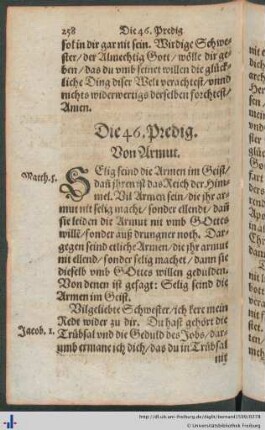 258 Die 46. Predig
sol in dir gar nit sein. Wirdige Schwe-
ster/ der Almechtig Gott/ wölle dir ge-
ben/ das du vmb seinet willen die glück-
liche Ding diser Welt verachtest/ vnnd
nichts widerwertigs derselben forchtest/
Amen.
Die 46. Predig.
Von Armut.
Matth. 5.
SElig seind die Armen im Geist/
dañ ihren ist das Reich der Him-
mel. Vil Armen sein/ die jhr ar-
mut nit selig macht/ sonder ellendt/ dañ
sie leiden die Armut nit vmb GOttes
wille/ sonder auß drungner noth. Dar-
gegen seind etliche Armen/ die jhr armut
nit ellend/ sonder selig machet/ dann sie
dieselb vmb GOttes willen gedulden.
Von denen ist gesagt: Selig seind die
Armen im Geist.
Vilgeliebte Schwester/ ich kere mein
Jacob. 1.
Redt wider zu dir. Du hast gehört die
Trübsal vnd die Geduld des Jobs/ dar-
umb ermane ich dich/ das du in Trübsal
nit
© Universitätsbibliothek Freiburg